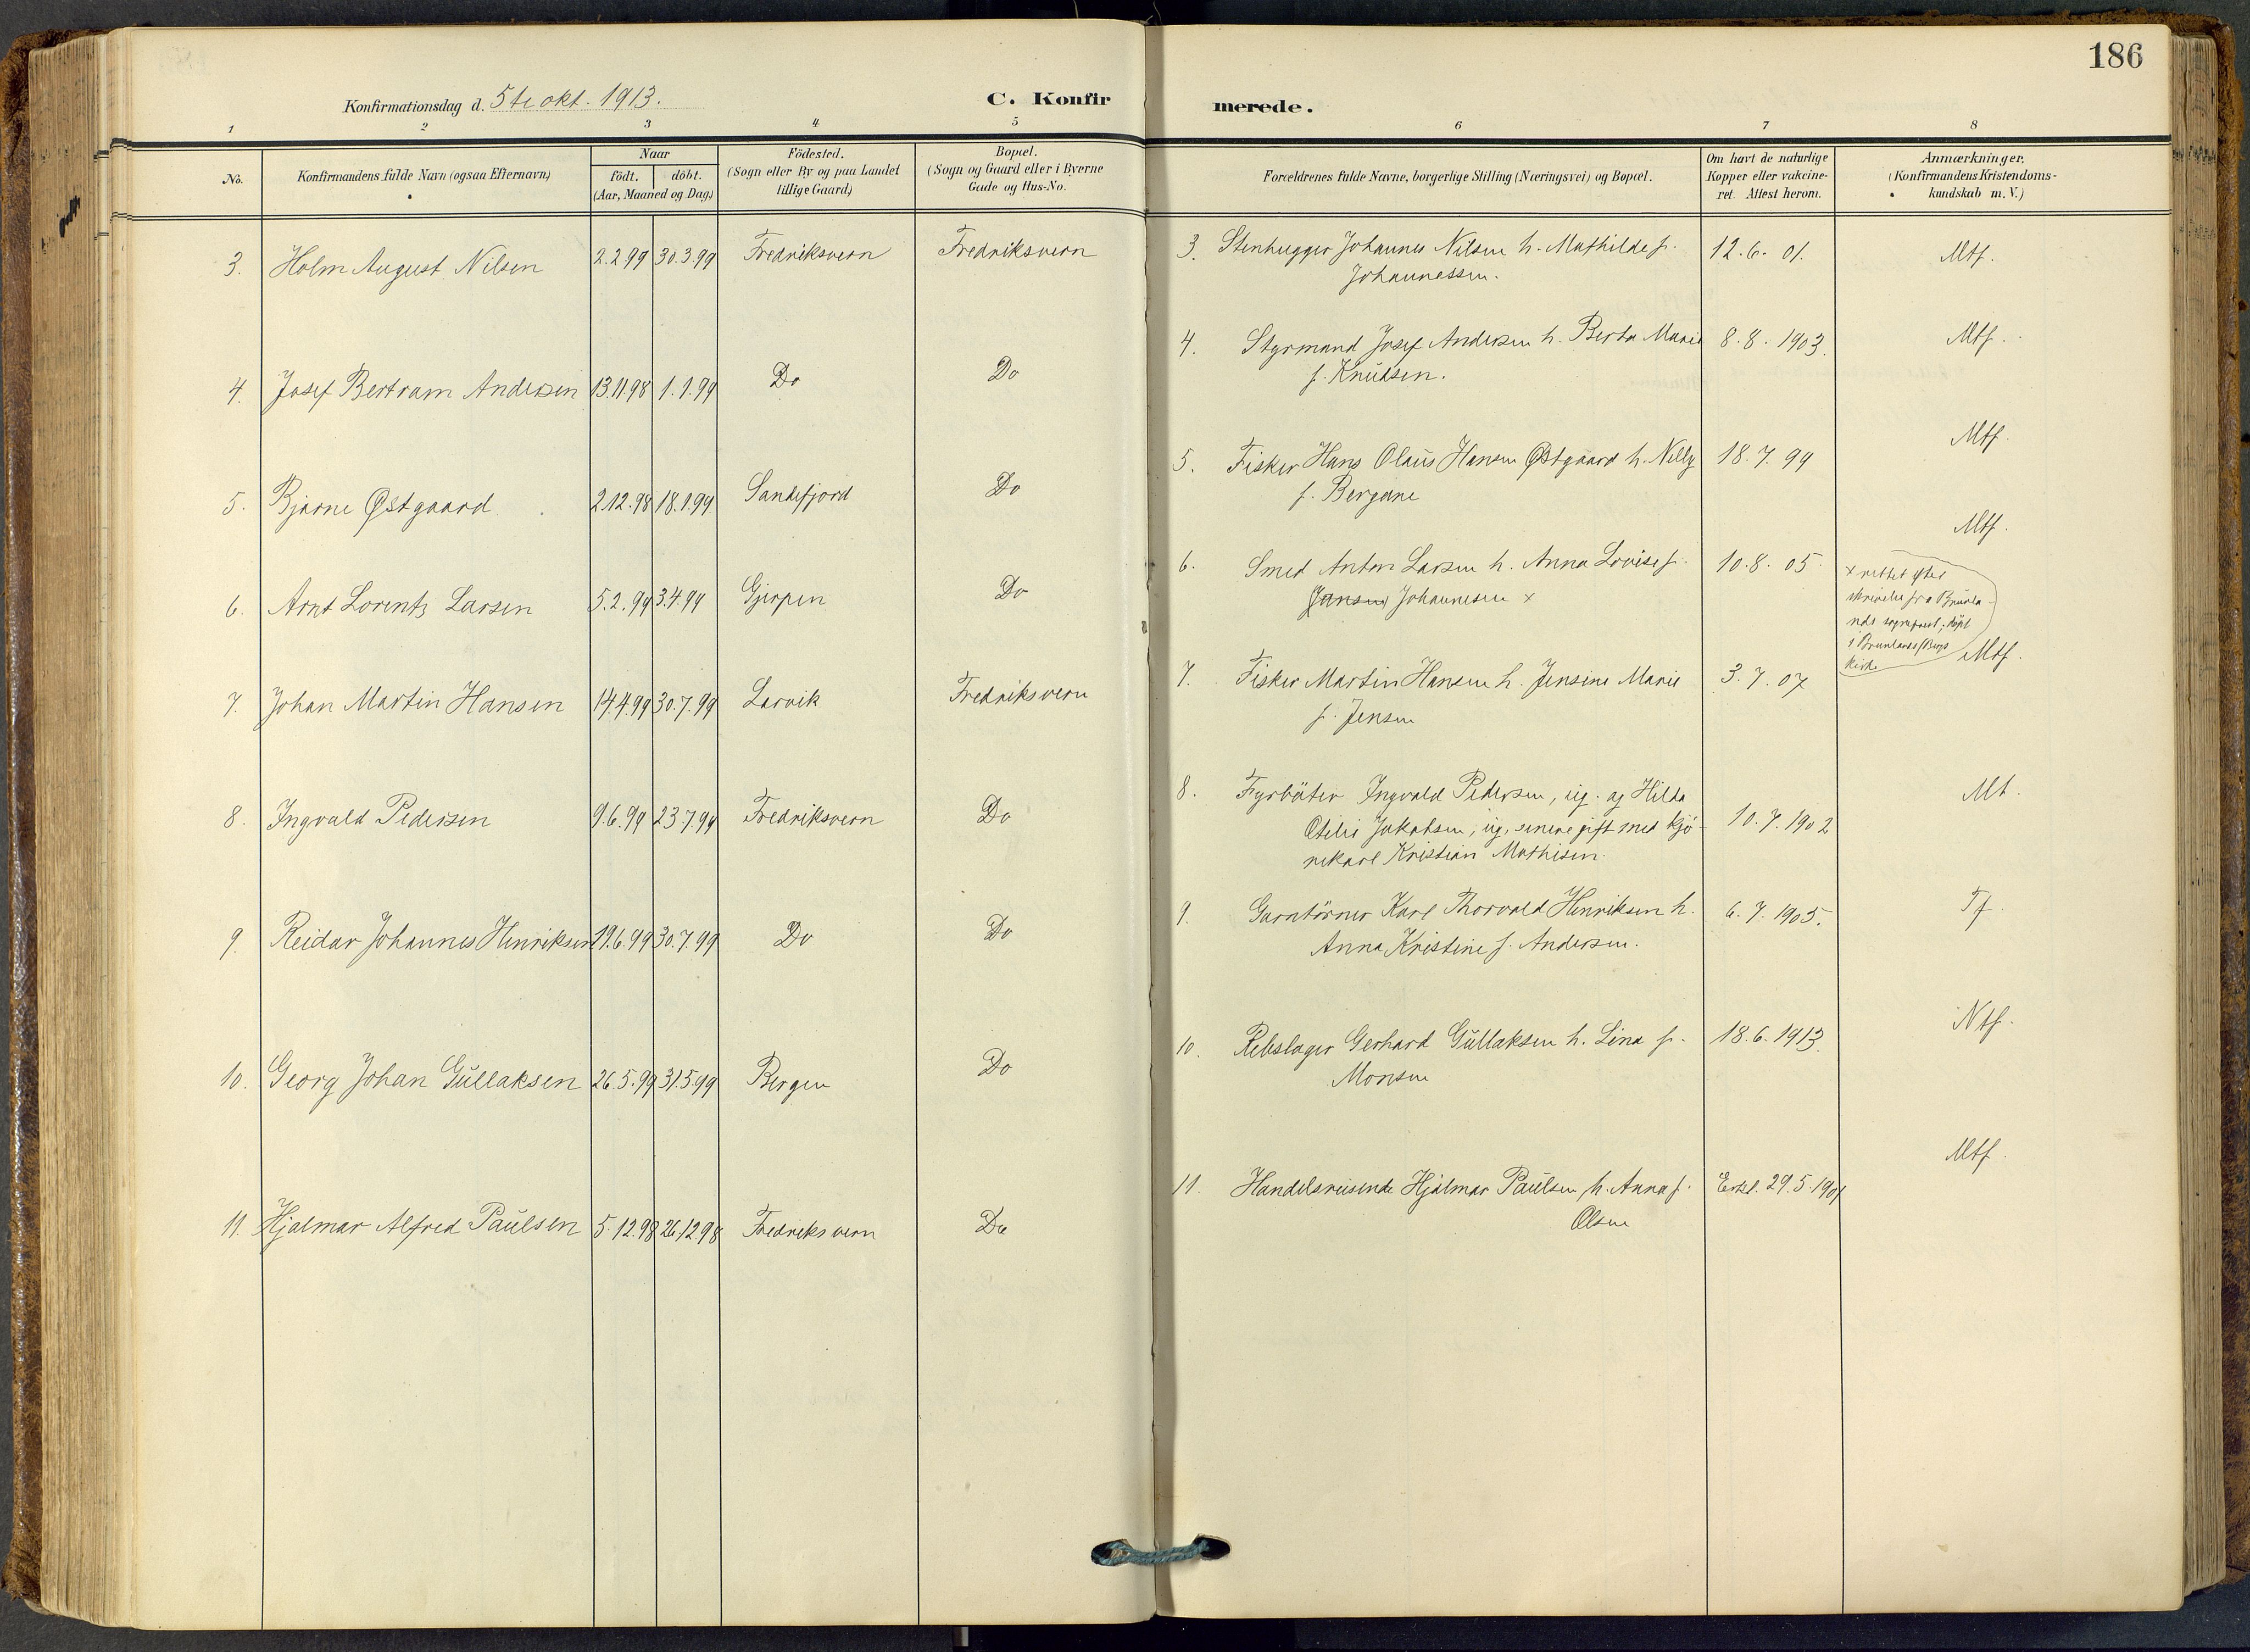 186
Konfirmationsdag d. 5te okt. 1913.
C. Konfir
merede.
1 2 3 4 5
6 7 8
No.
Konfirmandens fulde Navn (ogsaa Efternavn)
Naar
födt. döbt.
(Aar, Maaned og Dag.)
Födested.
(Sogn eller By og paa Landet
tillige Gaard)
Bopæl.
(Sogn og Gaard eller i Byerne
Gade og Hus-No.
Forældrenes fulde Navne, borgerlige Stilling (Næringsvei) og Bopæl.
Om havt de naturlige
Kopper eller vakcine-
ret. Attest herom.
Anmærkninger.
(Konfirmandens Kristendoms-
kundskab m. V.)
3. Holm August Nilsen 2.2.99 30.3.99 Fredriksvern Fredriksvern
4. Josef Bertram Andersen 13.11.98 1.1.99 Do Do
5. Bjarne Østgaard 2.12.98 18.1.99 Sandefjord Do
6. Arnt Lorentz Larsen 5.2.99 3.4.99 Gjerpen Do
7. Johan Martin Hansen 14.4.99 30.7.99 Larvik Fredriksvern
8. Ingvald Pedersen 9.6.99 23.7.99 Fredriksvern Do
9. Reidar Johannes Henriksen 19.6.99 30.7.99 Do Do
10. Georg Johan Gullaksen 26.5.99 31.5.99 Bergen Do
11. Hjalmar Alfred Paulsen 5.12.98 26.12.98 Fredriksvern Do
3. Stenhugger Johannes Nilsen h. Mathilde f. 12.6. 01. Mtf.
Johannessen.
4. Styrmand Josef Andersen h. Berta Marie 8.8. 1903. Mtf.
f. Knudsen.
5. Fisker Hans Olaus Hansen Østgaard h. Nelly 18.7.99 Mtf.
f. Bergane
6. Smed Anton Larsen h. Anna Lovise f. 10.8. 05. Mtf.
Jansen Johannesen x
x rettet efter
skrivelse fra Brunla-
nds sogneprest; døpt
i Brunlanes/Bergs
kirke
7. Fisker Martin Hansen h. Jensine Marie 3.7.07 Mtf.
f. Jensen
8. Fyrböter Ingvald Pedersen, ug. og Hilda Mt.
Otilie Jakobsen, ug, senere gift med kjö-
rekarl Kristian Mathisen. 10.7.1902
9. Garntörner Karl Thorvald Henriksen h. 6.7.1905. Tf.
Anna Kristine f. Andersen.
10. Rebslager Gerhard Gullaksen h. Lina f. 18.6.1913. Ntf.
Monsen
11. Handelsreisende Hjalmar Paulsen h. Anna f. Erkl. 29.5.1901 Mtf.
Olsen